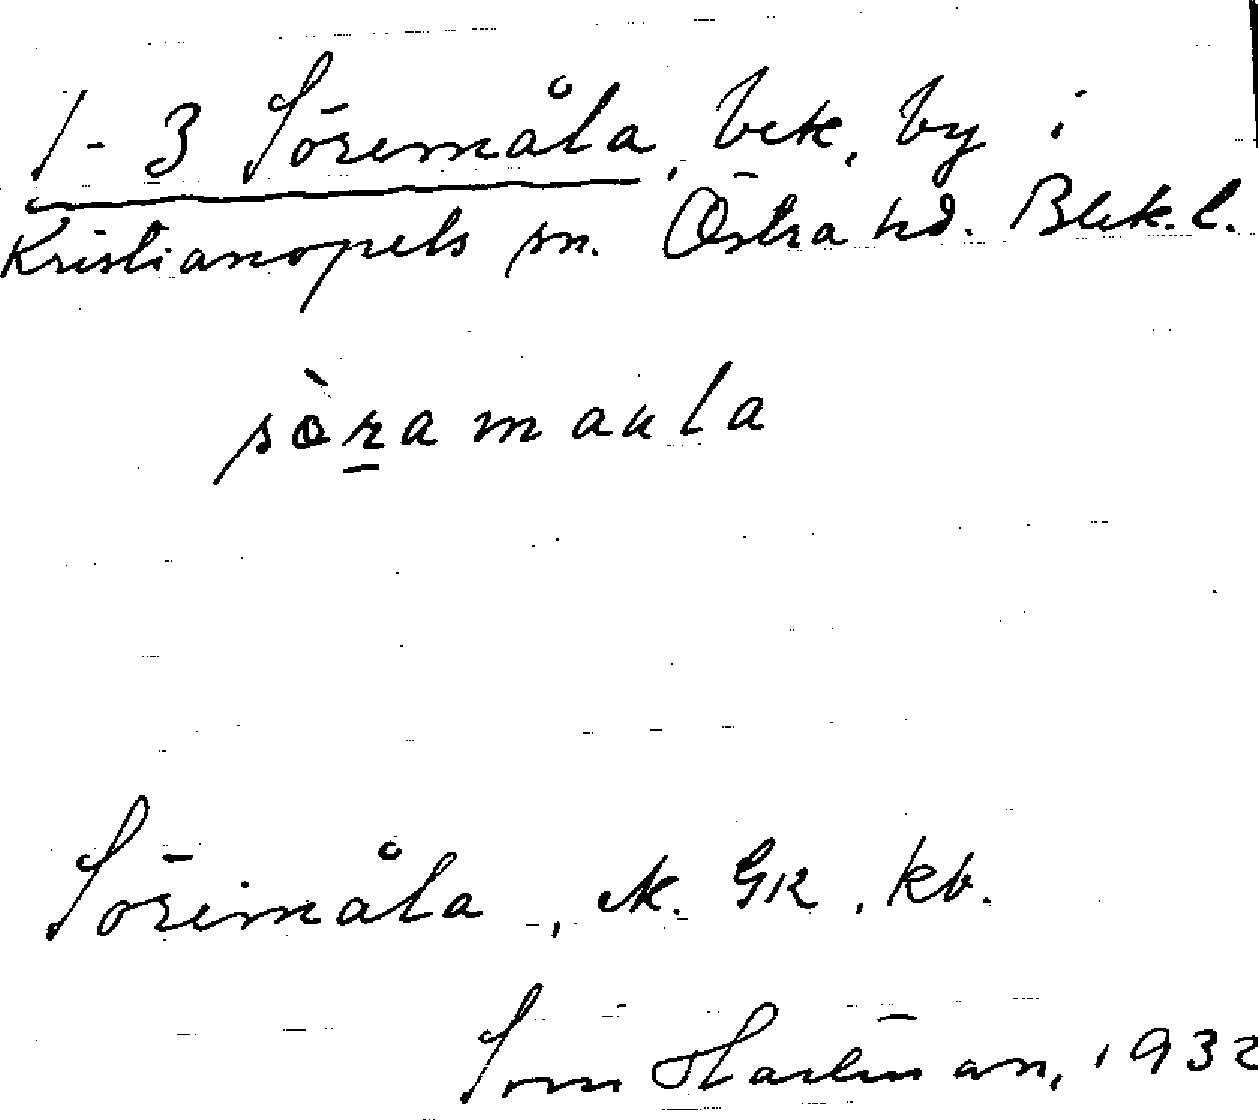 1-3 Söremåla, bek, by i
Kristianopels sn. Östra hd. Blek.l.
sòramaula
Sörimåla, ek. GK, kb.
Hartman, 1932